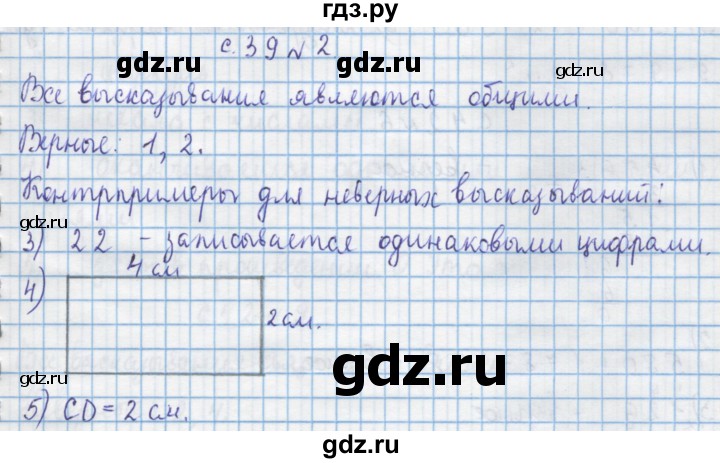 гдз.ру
с. 39 № 2
gdz.ru gdz.ru
Все высказывания являются общими.
Верные: 1, 2.
gdz.ru
Контрпримеры для неверных высказываний:
gdz.ru
3) 22 – записывается одинаковыми цифрами.
4 см
4)
2 см.
gdz.ru gdz.ru
5) CD = 2 см.
gdz.ru